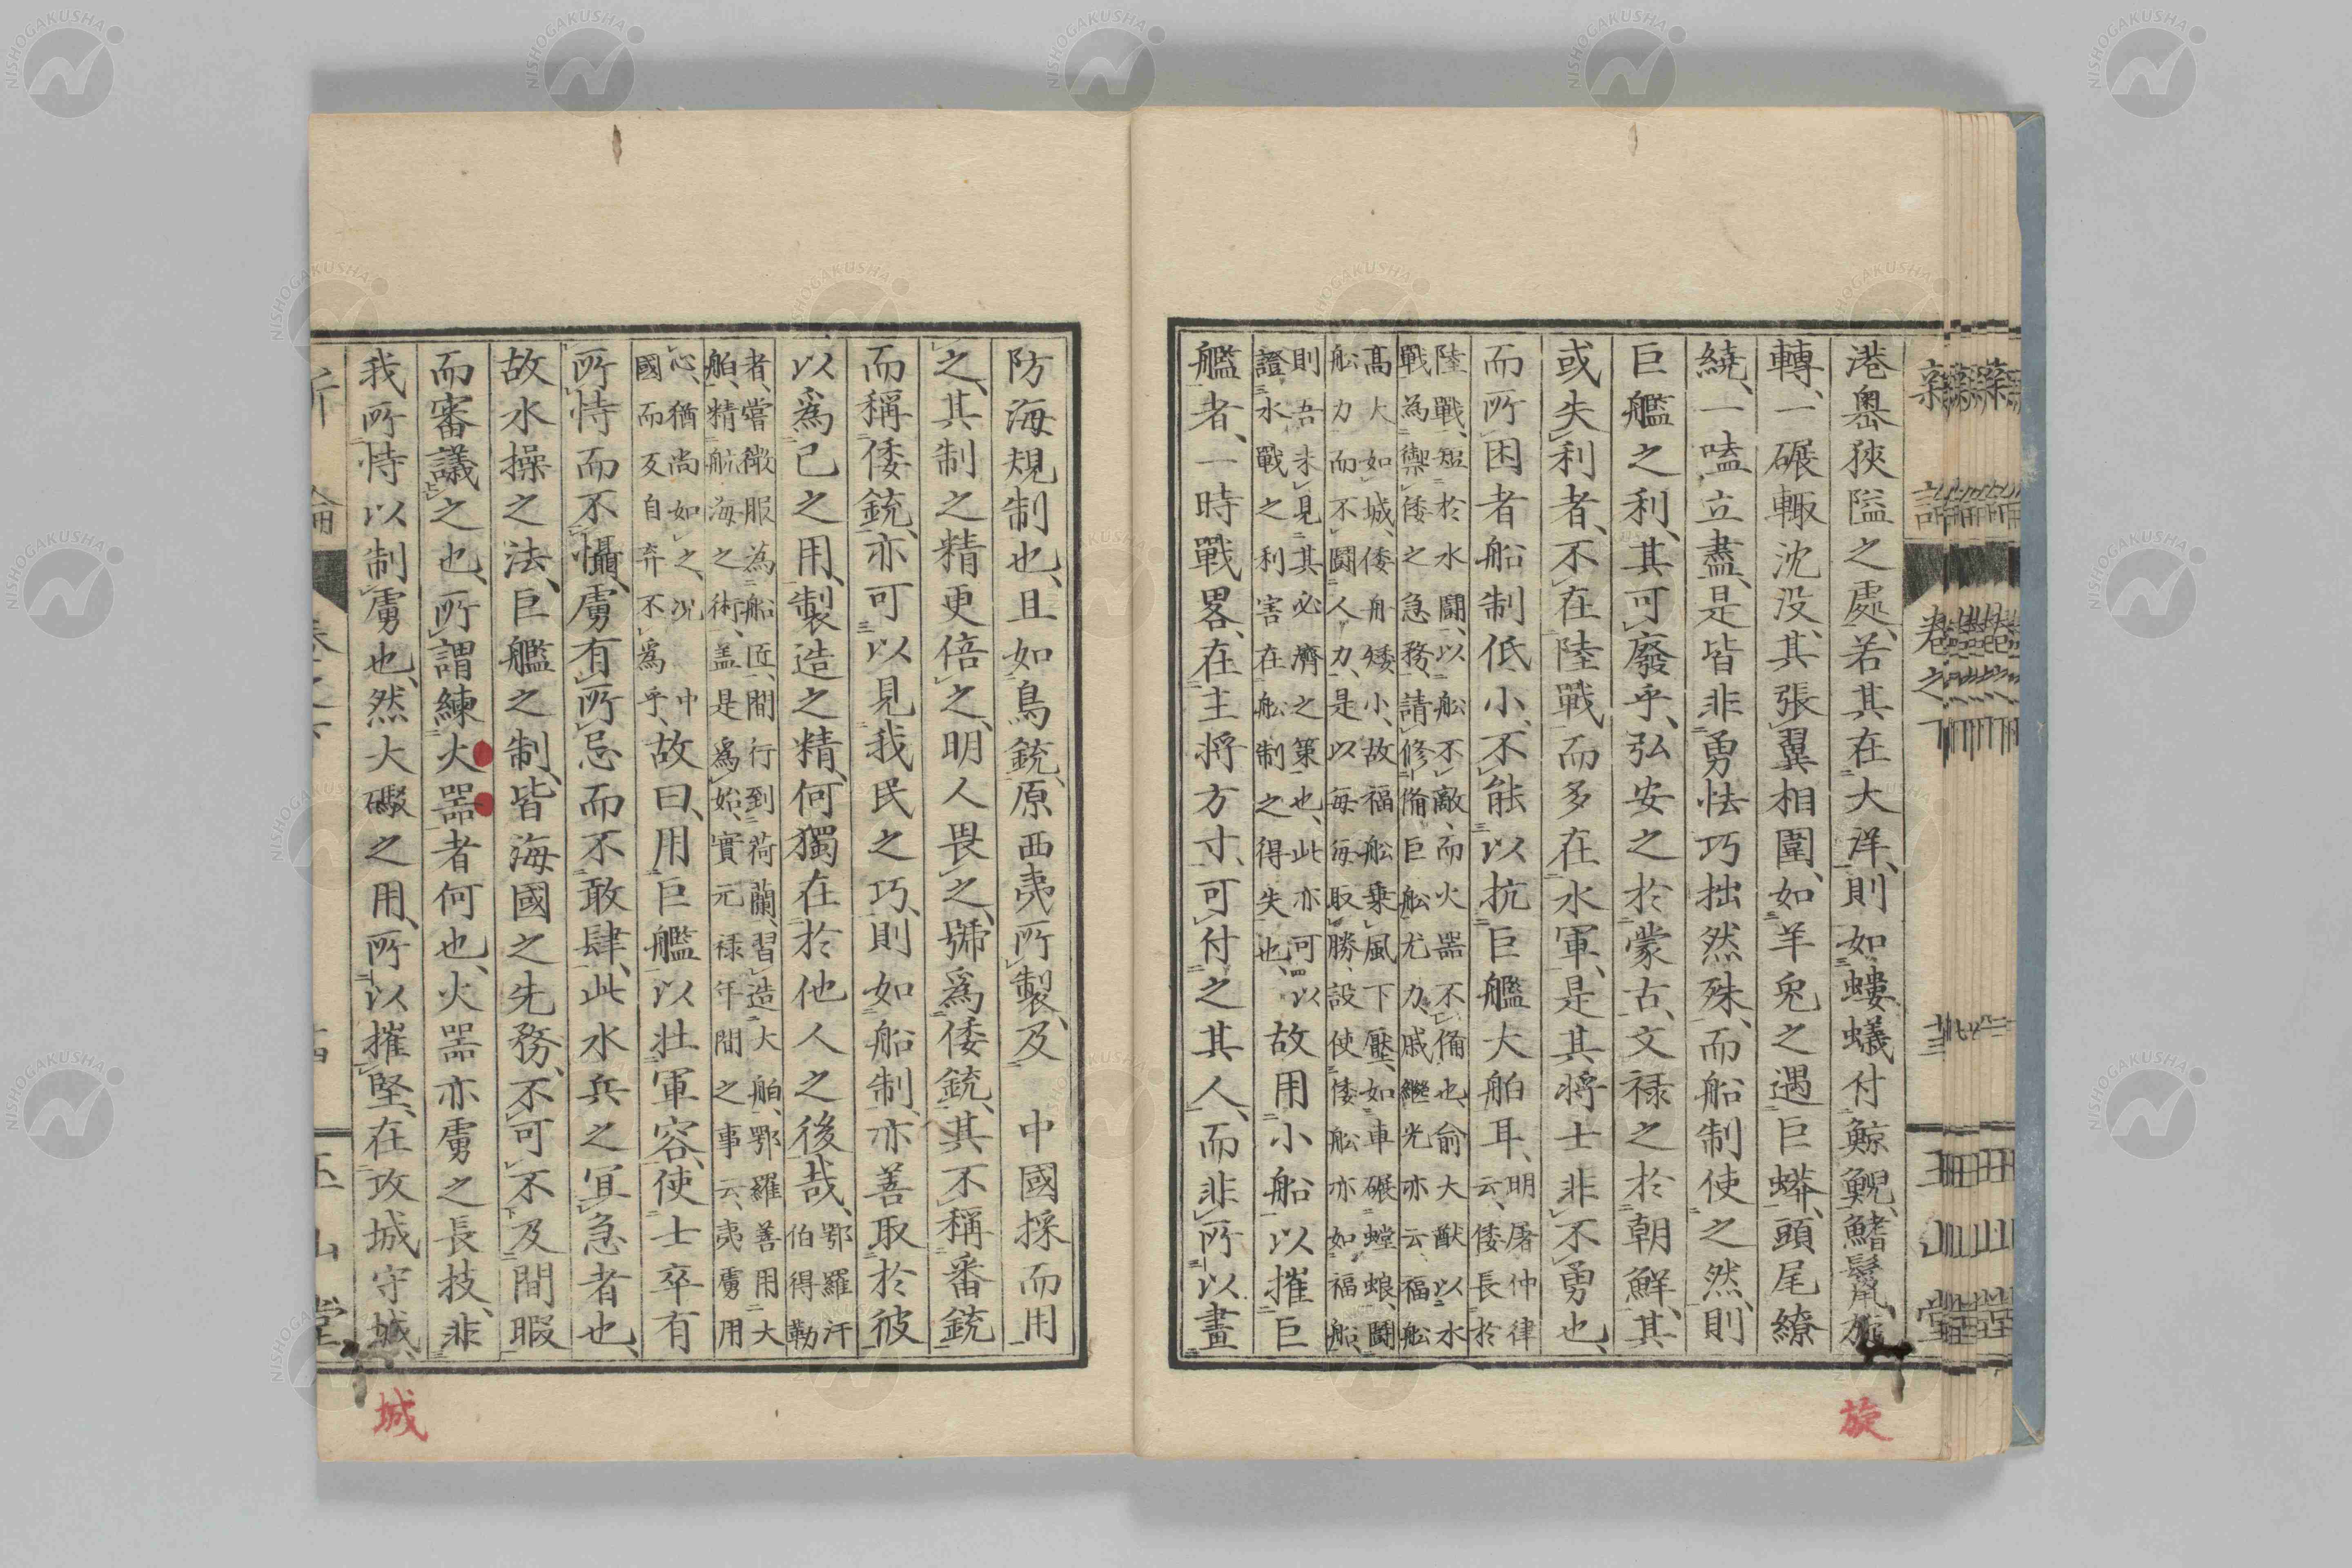 港嶴狹隘之處、若其在大洋、則如螻蟻付鯨鯢、鰭鬣
轉、一碾輙沈没、其張翼相圍、如羊兎之遇巨蟒、頭尾繚
繞、一嗑立盡、是皆非勇怯巧拙然殊、而船制使之然、則
巨艦之利、其可廢乎、弘安之於蒙古、文禄之於朝鮮、其
或失利者、不在陸戰、而多在水軍、是其將士非不勇也、
而所困者船制低小、不能以抗巨艦大舶耳、明屠仲律云、倭長於
陸戰、短於水鬪、以舩不敵、而火器不備也、俞大猷以水
戰為禦倭之急務、請修備巨舩尤力、戚繼光亦云、福舩
高大如城、倭舟矮小、故福舩乗風下壓、如車碾螳蜋、鬪
舩力而不鬪人力、是以毎毎取勝、設使倭舩亦如福船、
則吾未見其必濟之策也、此亦可以
證水戰之利害在舩制之得失也、故用小船以摧巨
艦者、一時戰畧、在主將方寸、可付之其人、而非所以畫
防海規制也、且如鳥銃、原西夷所製、及中國採而用
之、其制之精更倍之、明人畏之、號為倭銃、其不稱番銃
而稱倭銃、亦可以見我民之巧、則如船制、亦善取於彼
以爲己之用、製造之精、何獨在於他人之後哉、鄂羅汗伯得勒
者、嘗微服為船匠、間行到荷蘭、習造大舶、鄂羅善用大
舶、精航海之術、盖是爲始、實元禄年間之事云、夷虜用
心、猶尚如之、况中
國而反自弃不爲乎、故曰、用巨艦以壮軍容、使士卒有
所恃而不懾、虜有所忌而不敢肆、此水兵之冝急者也、
故水操之法、巨艦之制、皆海國之先務、不可不及間暇
而審議之也、所謂練火器者何也、火器亦虜之長技、非
我所恃以制虜也、然大礮之用、所以摧堅、在攻城守城、
旋
城
卷之
玉山堂
NISHOGAKUSHA